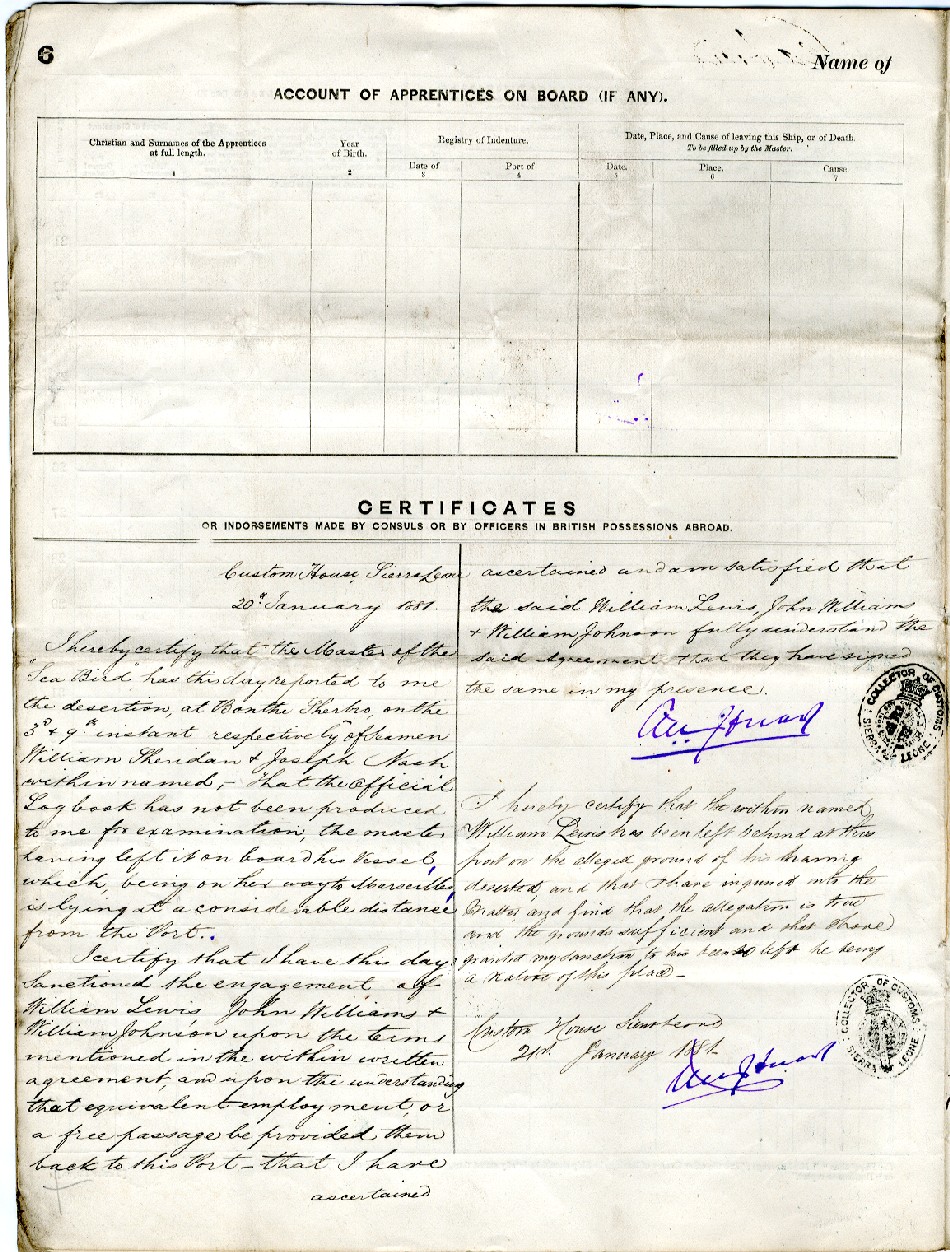 6
Name of
ACCOUNT OF APPRENTICES ON BOARD (IF ANY).
Christian and Surnames of the Apprentices
at ful. length.
1
Year
of Birth.
2
Registry of Indenture.
Date of
3
Port of
4
Date, Place, and Cause of leaving this Ship, or of Death.
To be filled up by the Master.
Date.
5
Place.
6
Cause
7
CERTIFICATES
OR INDORSEMENTS MADE BY CONSULS OR BY OFFICERS IN BRITISH POSSESSIONS ABROAD.
Custom House Sierra Leone
20th January 1881.
I hereby certify that the Master of the
"Sea Bird" has this day reported to me
the desertion, at Bonthe Sherbro, on the
3rd & 9th instant respectively of Seamen
William Sheridan & Joseph Nash
within named, - that the Official
Logbook has not been produced
to me for examination, the master
having left it on board his vessel,
which, being on her way to Marseilles,
is lying at a considerable distance
from the Port.
I certify that I have this day
sanctioned the engagement of
William Lewis John Williams &
William Johnson upon the terms
mentioned in the within written
agreement, and upon the understanding
that equivalent employment, or
a free passage be provided them
back to this Port - that I have
ascertained
ascertained and am satisfied that
the said William Lewis, John Williams
& William Johnson fully understand the
said Agreement & that they have signed
the same in my presence.
COLLECTOR OF CUSTOMS
SIERRA LEONE
I hereby certify that the within named
William Lewis has been left behind at this
port on the alleged ground of his having
deserted, and that I have inquired into the
Matter and find that the allegation is true
and the grounds sufficient and that I have
granted my sanction to his being so left he being
a native of this place -
Custom House Sierra Leone
21st January 1881
COLLECTOR OF CUSTOMS
SIERRA LEONE